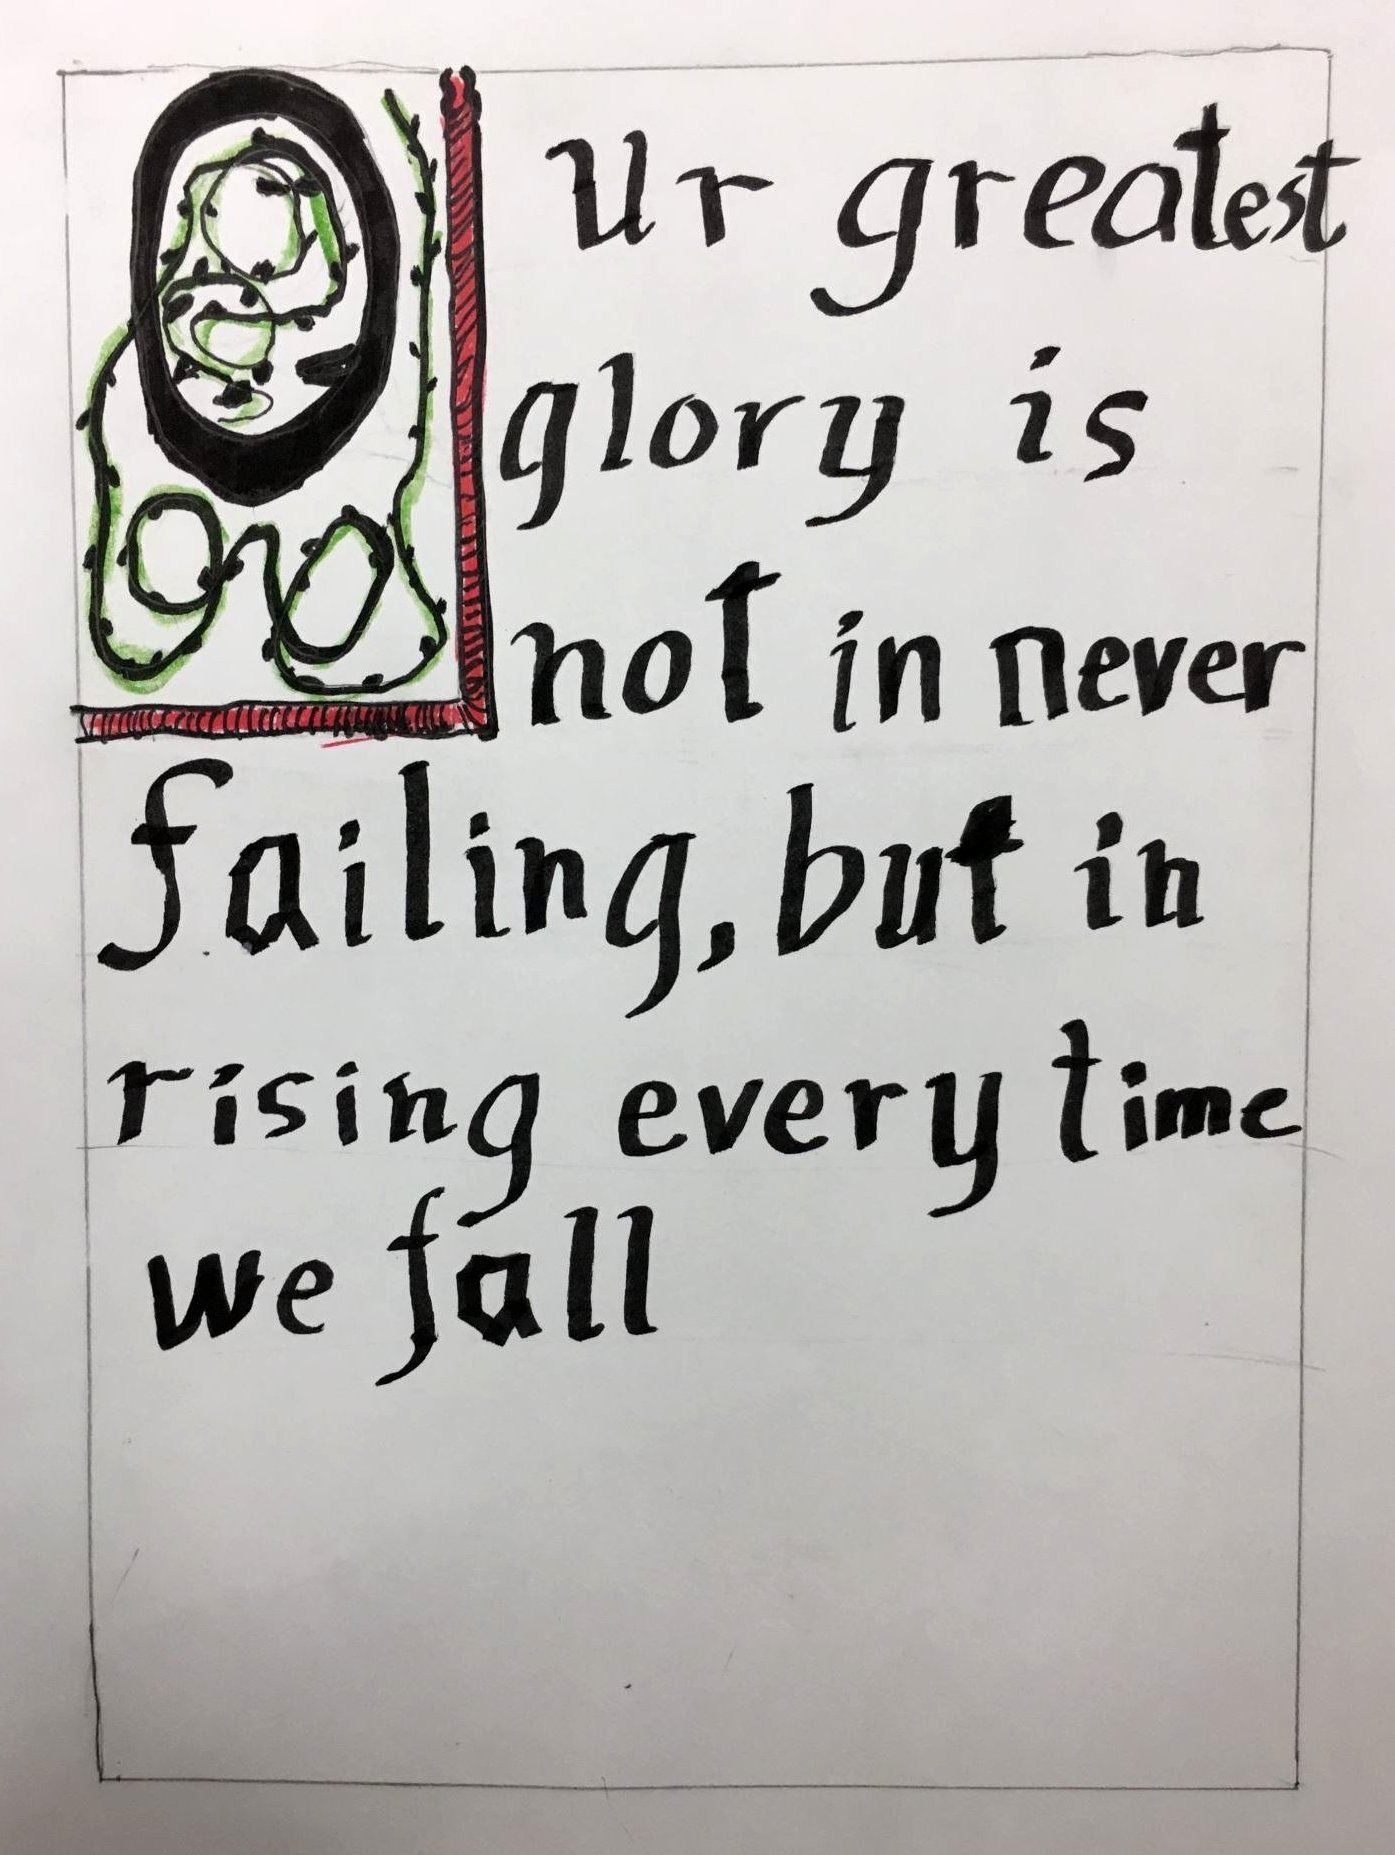 Our greatest
glory is
not in never
failing, but in
rising every time
we fall